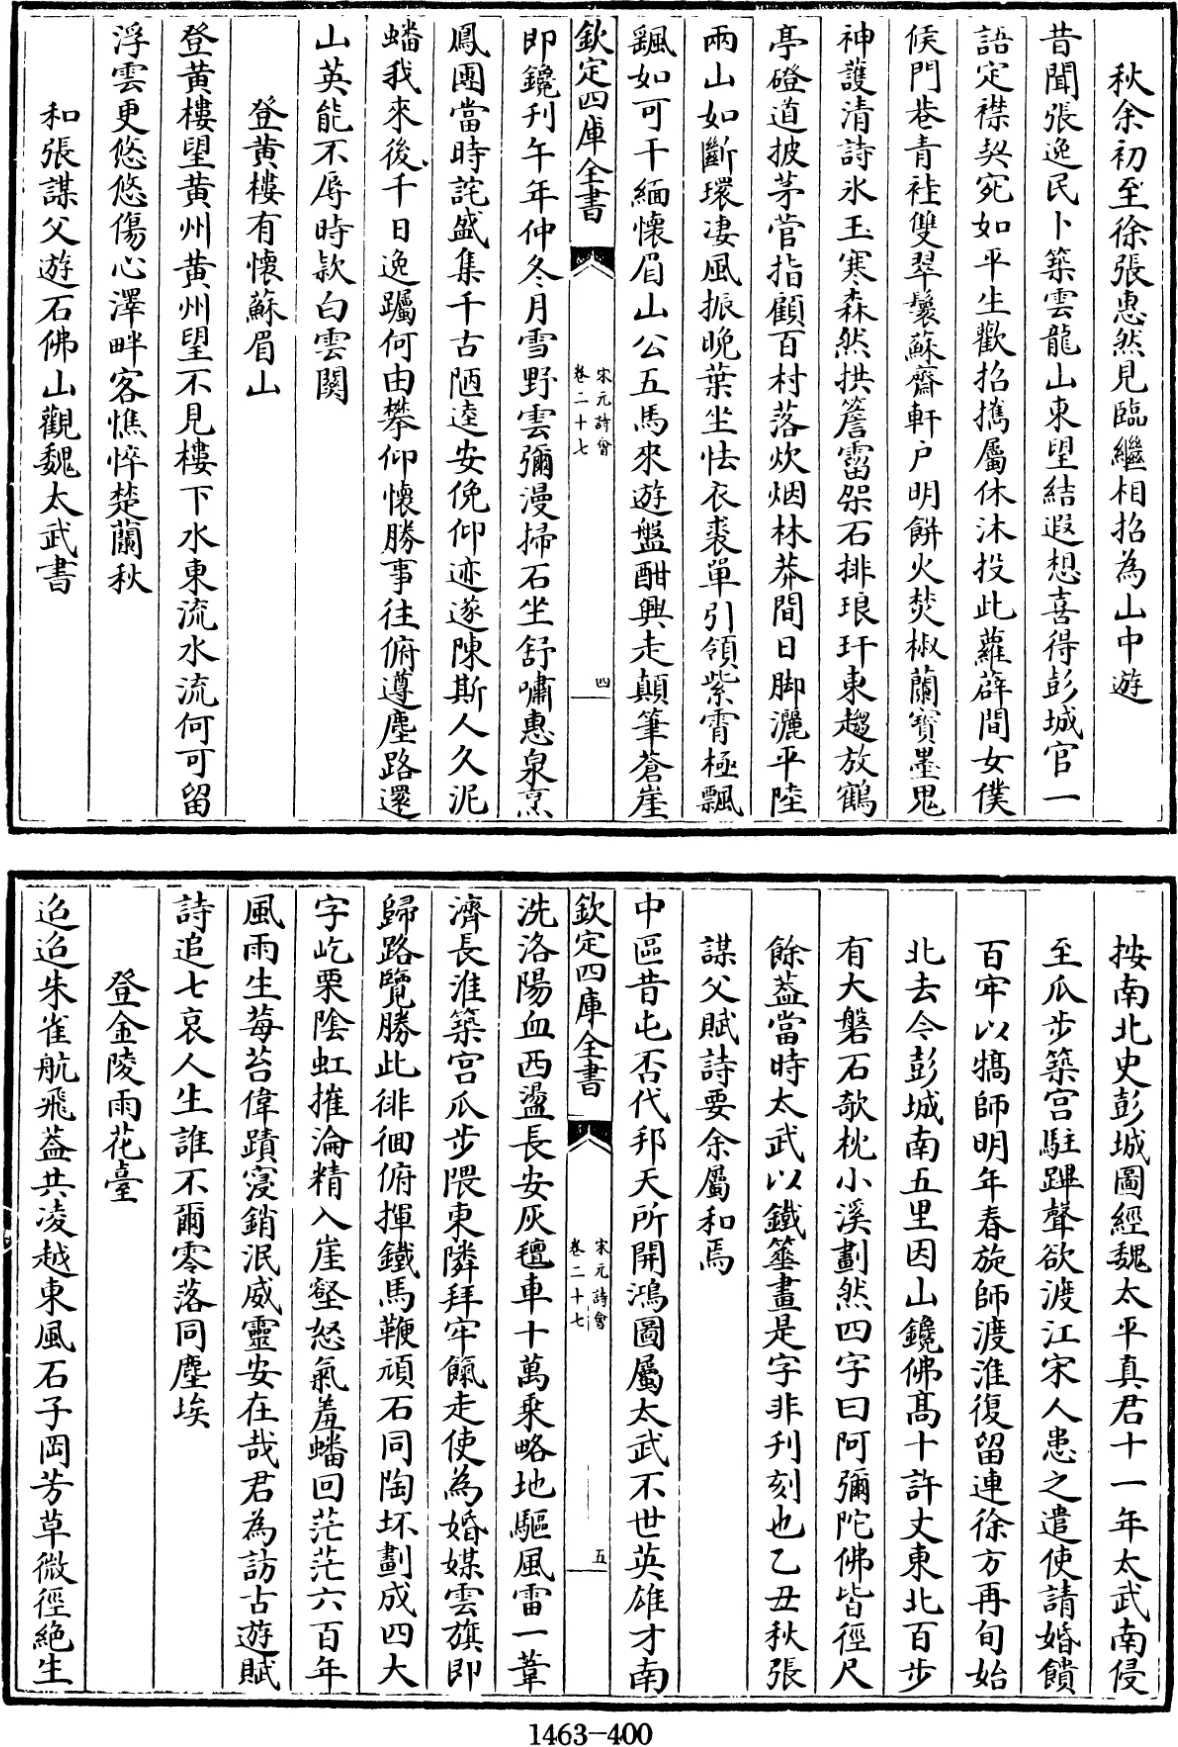 秋余初至徐張惠然見臨繼相招為山中遊
昔聞張逸民卜築雲龍山東望結遐想喜得彭城官一
語定襟契宛如平生歡招攜屬休沐投此蘿薜間女僕
候門巷青袿雙翠鬟蘇齋軒戶明餅火焚椒蘭寶墨鬼
神護清詩氷玉寒森然拱簷霤架石排琅玕東趨放鶴
亭磴道披茅菅指顧百村落炊烟林莽間日脚灑平陸
兩山如斷環凄風振晚葉坐怯衣裘單引領紫霄極飄
飄如可干緬懷眉山公五馬來遊盤酣興走顛筆蒼崖
欽定四庫全書
宋元詩會
卷二十七
四
即鑱刋午年仲冬月雪野雲彌漫掃石坐舒嘯惠泉烹
鳳團當時詫盛集千古陋逵安俛仰迹遂陳斯人久泥
蟠我來後千日逸躅何由攀仰懷勝事往俯遵塵路還
山英能不辱時款白雲關
登黄樓有懷蘇眉山
登黄樓望黄州黄州望不見樓下水東流水流何可留
浮雲更悠悠傷心澤畔客憔悴楚蘭秋
和張謀父遊石佛山觀魏太武書
按南北史彭城圖經魏太平真君十一年太武南侵
至瓜步築宫駐蹕聲欲渡江宋人患之遣使請婚饋
百牢以犒師明年春旋師渡淮復留連徐方再旬始
北去今彭城南五里因山鑱佛髙十許丈東北百步
有大磐石欹枕小溪劃然四字曰阿彌陀佛皆徑尺
餘葢當時太武以鐵箠畫是字非刋刻也乙丑秋張
謀父賦詩要余屬和焉
中區昔屯否代邦天所開鴻圖屬太武不世英雄才南
欽定四庫全書
宋元詩會
卷二十七
五
洗洛陽血西盪長安灰氊車十萬乘略地驅風雷一葦
濟長淮築宫瓜步隈東隣拜牢餼走使為婚媒雲旗即
歸路覽勝此徘徊俯揮鐵馬鞭頑石同陶坏劃成四大
字屹栗陰虹摧淪精入崖壑怒氣羞蟠回茫茫六百年
風雨生莓苔偉蹟寖銷泯威靈安在哉君為訪古遊賦
詩追七哀人生誰不爾零落同塵埃
登金陵雨花臺
迢迢朱雀航飛葢共凌越東風石子岡芳草微徑絶生
1463-400